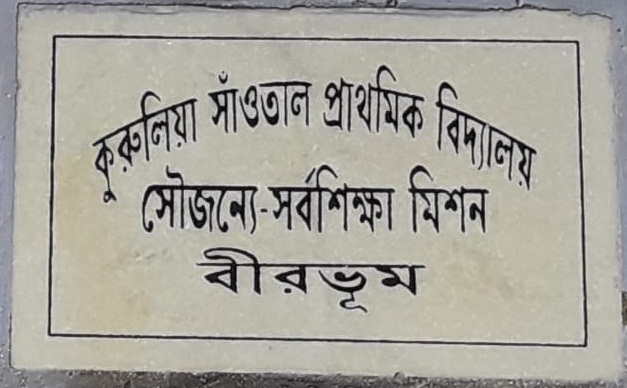 কুরুলিয়া সাঁওতাল প্রাথমিক বিদ্যালয়
সৌজন্যে-সর্বশিক্ষা মিশন
বীরভূম